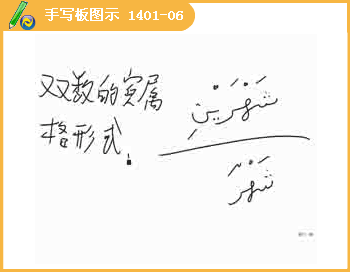 手写板图示 1401-06
双数的宾属
格形式.
شَهْرَيْنِ
شَهْر